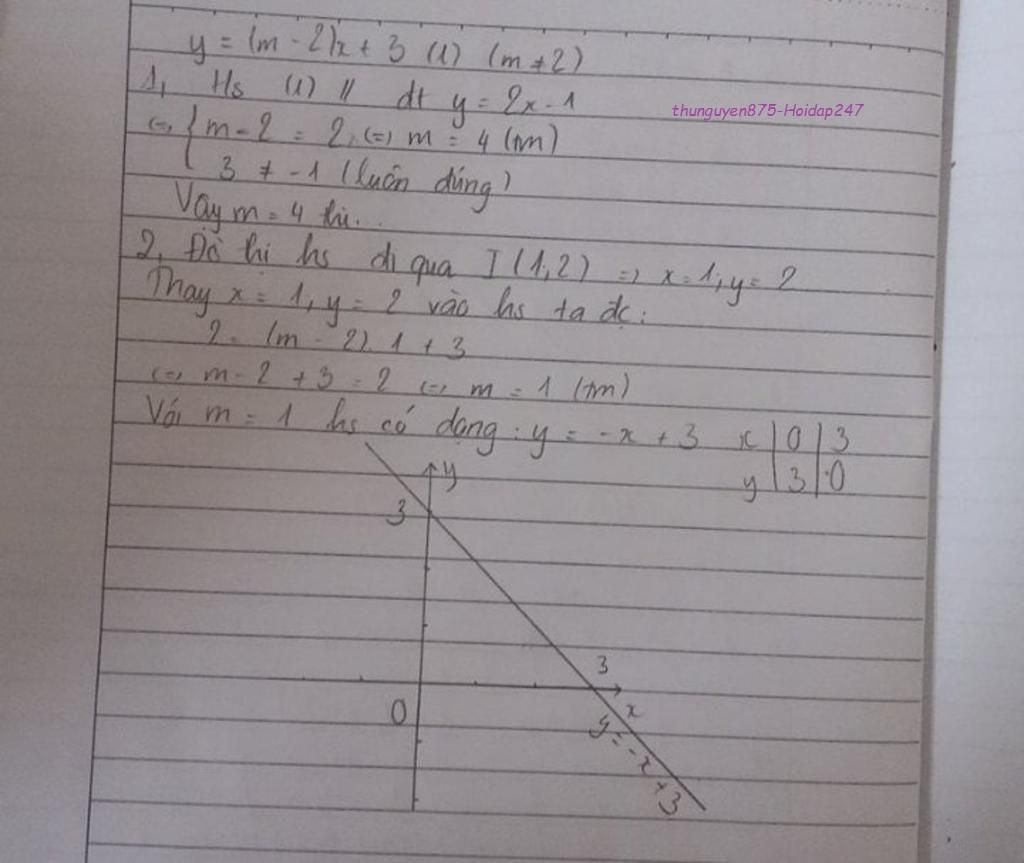 y = (m - 2)x + 3 (1) (m ≠ 2)
1, Hs (1) // dt y = 2x - 1
thunguyen875-Hoidap247
<=> { m - 2 = 2 <=> m = 4 (tm)
3 ≠ -1 (luôn đúng)
Vậy m = 4 thì...
2, Đồ thị hs đi qua I (1;2) => x = 1; y = 2
Thay x = 1, y = 2 vào hs ta đc:
2 = (m - 2).1 + 3
<=> m - 2 + 3 = 2 <=> m = 1 (tm)
Với m = 1 hs có dạng: y = -x + 3
x | 0 | 3
y | 3 | 0
y
3
3
O
x
y = -x + 3